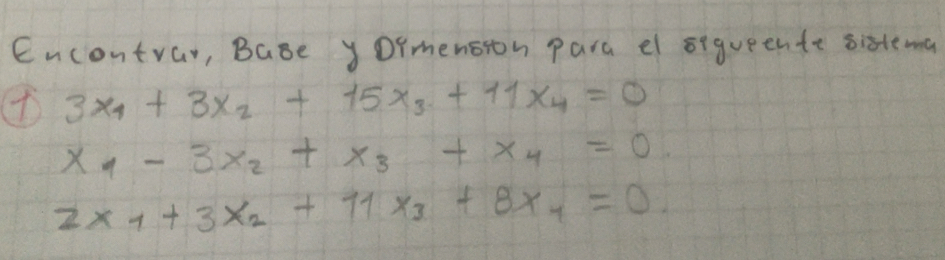 Encontrar, Base y Dimension para el siguiente sistema
1 3x₁ + 3x₂ + 15x₃ + 11x₄ = 0
x₁ - 3x₂ + x₃ + x₄ = 0.
2x₁ + 3x₂ + 11x₃ + 8x₄ = 0.